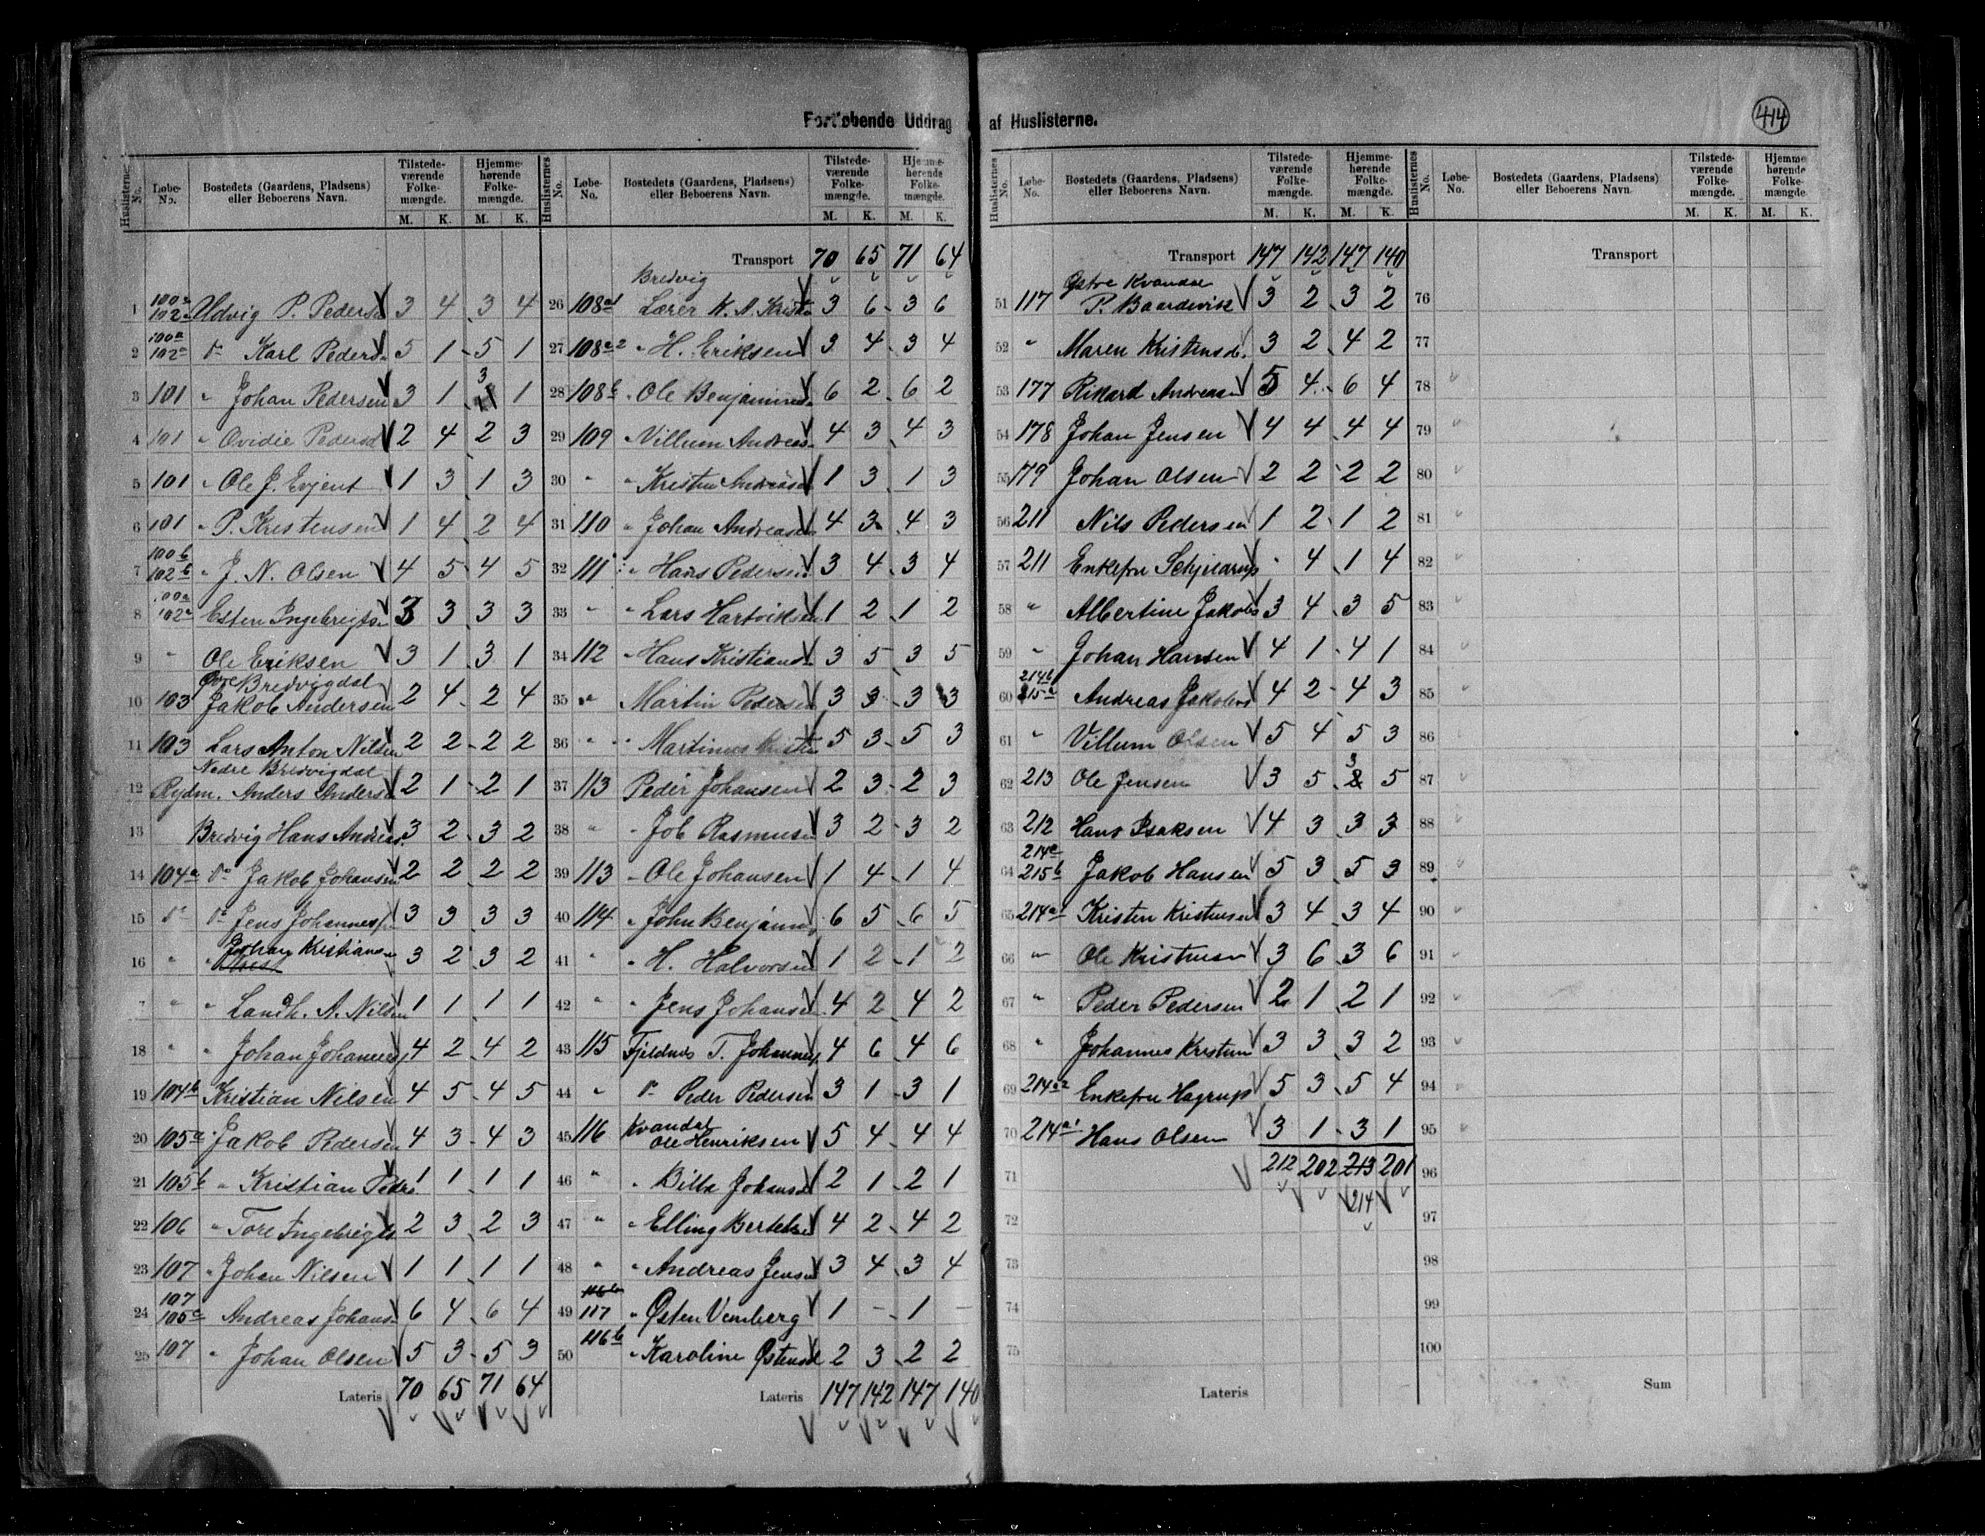 414
Fortløbende Uddrag af Huslisterne.
Huslisternes No. Løbe-No. Bostedets (Gaardens, Pladsens) eller Beboerens Navn. Tilstedeværende Folkemængde. M. K. Hjemmehørende Folkemængde. M. K.
1 100a 102a Udvig P. Peders 3 4 3 4
2 100a 102a do Karl Peders 5 1 5 1
3 101 " Johan Pedersen 3 1 3 1
4 101 " Ovidie Pedersd 2 4 2 3
5 101 " Ole J. Evjent 1 3 1 3
6 101 " P. Kristensen 1 4 2 4
7 100b 102b " J. N. Olsen 4 5 4 5
8 100a 102a Esten Ingebrigts 3 3 3 3
9 " Ole Eriksen 3 1 3 1
Øvre Bredvigdal
10 103 Jakob Andersen 2 4 2 4
11 103 Lars Anton Nilsen 2 2 2 2
Nedre Bredvigdal
12 Rydn. Anders Anders 2 1 2 1
13 Bredvig Hans Andreas. 3 2 3 2
14 104a do Jakob Johansen 2 2 2 2
15 do do Jens Johannes 3 3 3 3
16 " " Johan Kristians 3 2 3 2
7 " " Landh. A. Nilsen 1 1 1 1
18 " " Johan Johannes 4 2 4 2
19 104b Kristian Nilsen 4 5 4 5
20 105a Jakob Pedersen 4 3 4 3
21 105b " Kristian Peders 1 1 1 1
22 106 " Tore Ingebrigts 2 3 2 3
23 107 " Johan Nilsen 1 1 1 1
24 107 105c Andreas Johans 6 4 6 4
25 107 " Johan Olsen 5 3 5 3
Lateris 70 65 71 64
Huslisternes No. Løbe-No. Bostedets (Gaardens, Pladsens) eller Beboerens Navn. Tilstedeværende Folkemængde. M. K. Hjemmehørende Folkemængde. M. K.
Transport 70 65 71 64
Bredvig
26 108a1 Lærer K. A. Krist 3 6 3 6
27 108a2 " H. Eriksen 3 4 3 4
28 108b " Ole Benjamins 6 2 6 2
29 109 " Villum Andreas 4 3 4 3
30 " " Kristen Andreas 1 3 1 3
31 110 " Johan Andreas 4 3 4 3
32 111 " Hans Pedersen 3 4 3 4
33 " " Lars Hartviksen 1 2 1 2
34 112 " Hans Kristians 3 5 3 5
35 " Martin Pedersen 3 3 3 3
36 " " Martinus Krist 5 3 5 3
37 113 Peder Johansen 2 3 2 3
38 " " Job Rasmusen 3 2 3 2
39 113 " Ole Johansen 1 4 1 4
40 114 " John Benjamin 6 5 6 5
41 " " H. Halvorsen 1 2 1 2
42 " " Jens Johans 4 2 4 2
43 115 Fjeldnes T. Johannes 4 6 4 6
44 " do Peder Pedersen 3 1 3 1
Kvandal
45 116 Ole Henriksen 5 4 4 4
46 " " Johans 2 1 2 1
47 " " Elling Bertels 4 2 4 2
48 " " Andreas Jens 3 4 3 4
116b
49 117 " Østen Vemberg 1 - 1 -
50 116b " Karoline Østensd 2 3 2 2
Lateris 147 142 147 140
Huslisternes No. Løbe-No. Bostedets (Gaardens, Pladsens) eller Beboerens Navn. Tilstedeværende Folkemængde. M. K. Hjemmehørende Folkemængde. M. K.
Transport 147 142 147 140
Østre Kvandal
51 117 P. Baardsvik 3 2 3 2
52 " Maren Kristensd. 3 2 4 2
53 177 Rikard Andreasen 5 4 6 4
54 178 Johan Jensen 4 4 4 4
55 179 Johan Olsen 2 2 2 2
56 211 Nils Pedersen 1 2 1 2
57 211 Enkefru Schjelderup - 4 1 4
58 " Albertine Jakobs 3 4 3 5
59 " Johan Hansen 4 1 4 1
60 214b 215a Andreas Jakobs 4 2 4 3
61 " Villum Olsen 5 4 5 3
62 213 Ole Jensen 3 5 3 5
63 212 Hans Isaksen 4 3 3 3
64 214a 215b Jakob Hansen 5 3 5 3
65 214a1 Kristen Kristensen 3 4 3 4
66 " Ole Kristensen 3 6 3 6
67 " Peder Pedersen 2 1 2 1
68 " Johannes Kristen 3 3 3 2
69 214a2 Enkefru Hagrup 5 3 5 4
70 214a1 Hans Olsen 3 1 3 1
71 212 202 213 201
72 214
73
74
75
Lateris
Huslisternes No. Løbe-No. Bostedets (Gaardens, Pladsens) eller Beboerens Navn. Tilstedeværende Folkemængde. M. K. Hjemmehørende Folkemængde. M. K.
Transport
76
77
78
79
80
81
82
83
84
85
86
87
88
89
90
91
92
93
94
95
96
97
98
99
100
Sum